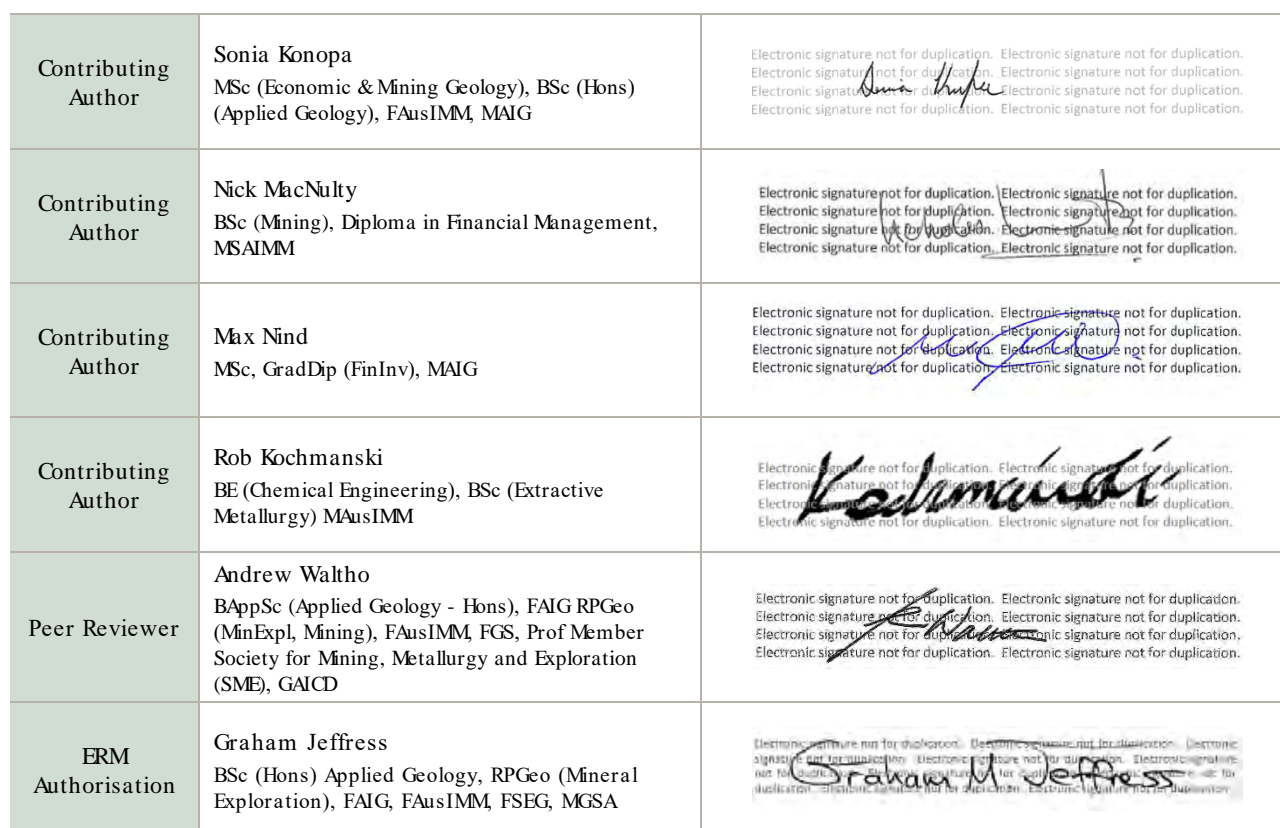 Contributing
Author
Sonia Konopa
MSc (Economic & Mining Geology), BSc (Hons)
(Applied Geology), FAusIMM, MAIG
Electronic signature not for duplication. Electronic signature not for duplication.
Electronic signature not for duplication. Electronic signature not for duplication.
Electronic signature not for duplication. Electronic signature not for duplication.
Electronic signature not for duplication. Electronic signature not for duplication.
Contributing
Author
Nick MacNulty
BSc (Mining), Diploma in Financial Management,
MSAIMM
Electronic signature not for duplication. Electronic signature not for duplication.
Electronic signature not for duplication. Electronic signature not for duplication.
Electronic signature not for duplication. Electronic signature not for duplication.
Electronic signature not for duplication. Electronic signature not for duplication.
Contributing
Author
Max Nind
MSc, GradDip (FinInv), MAIG
Electronic signature not for duplication. Electronic signature not for duplication.
Electronic signature not for duplication. Electronic signature not for duplication.
Electronic signature not for duplication. Electronic signature not for duplication.
Electronic signature not for duplication. Electronic signature not for duplication.
Contributing
Author
Rob Kochmanski
BE (Chemical Engineering), BSc (Extractive
Metallurgy) MAusIMM
Electronic signature not for duplication. Electronic signature not for duplication.
Electronic signature not for duplication. Electronic signature not for duplication.
Electronic signature not for duplication. Electronic signature not for duplication.
Electronic signature not for duplication. Electronic signature not for duplication.
Kochmański
Peer Reviewer
Andrew Waltho
BAppSc (Applied Geology - Hons), FAIG RPGeo
(MinExpl, Mining), FAusIMM, FGS, Prof Member
Society for Mining, Metallurgy and Exploration
(SME), GAICD
Electronic signature not for duplication. Electronic signature not for duplication.
Electronic signature not for duplication. Electronic signature not for duplication.
Electronic signature not for duplication. Electronic signature not for duplication.
Electronic signature not for duplication. Electronic signature not for duplication.
ERM
Authorisation
Graham Jeffress
BSc (Hons) Applied Geology, RPGeo (Mineral
Exploration), FAIG, FAusIMM, FSEG, MGSA
Electronic signature not for duplication. Electronic signature not for duplication. Electronic
signature not for duplication. Electronic signature not for duplication. Electronic signature
not for duplication. Electronic signature not for duplication. Electronic signature not for
duplication. Electronic signature not for duplication. Electronic signature not for duplication.
Graham M Jeffress